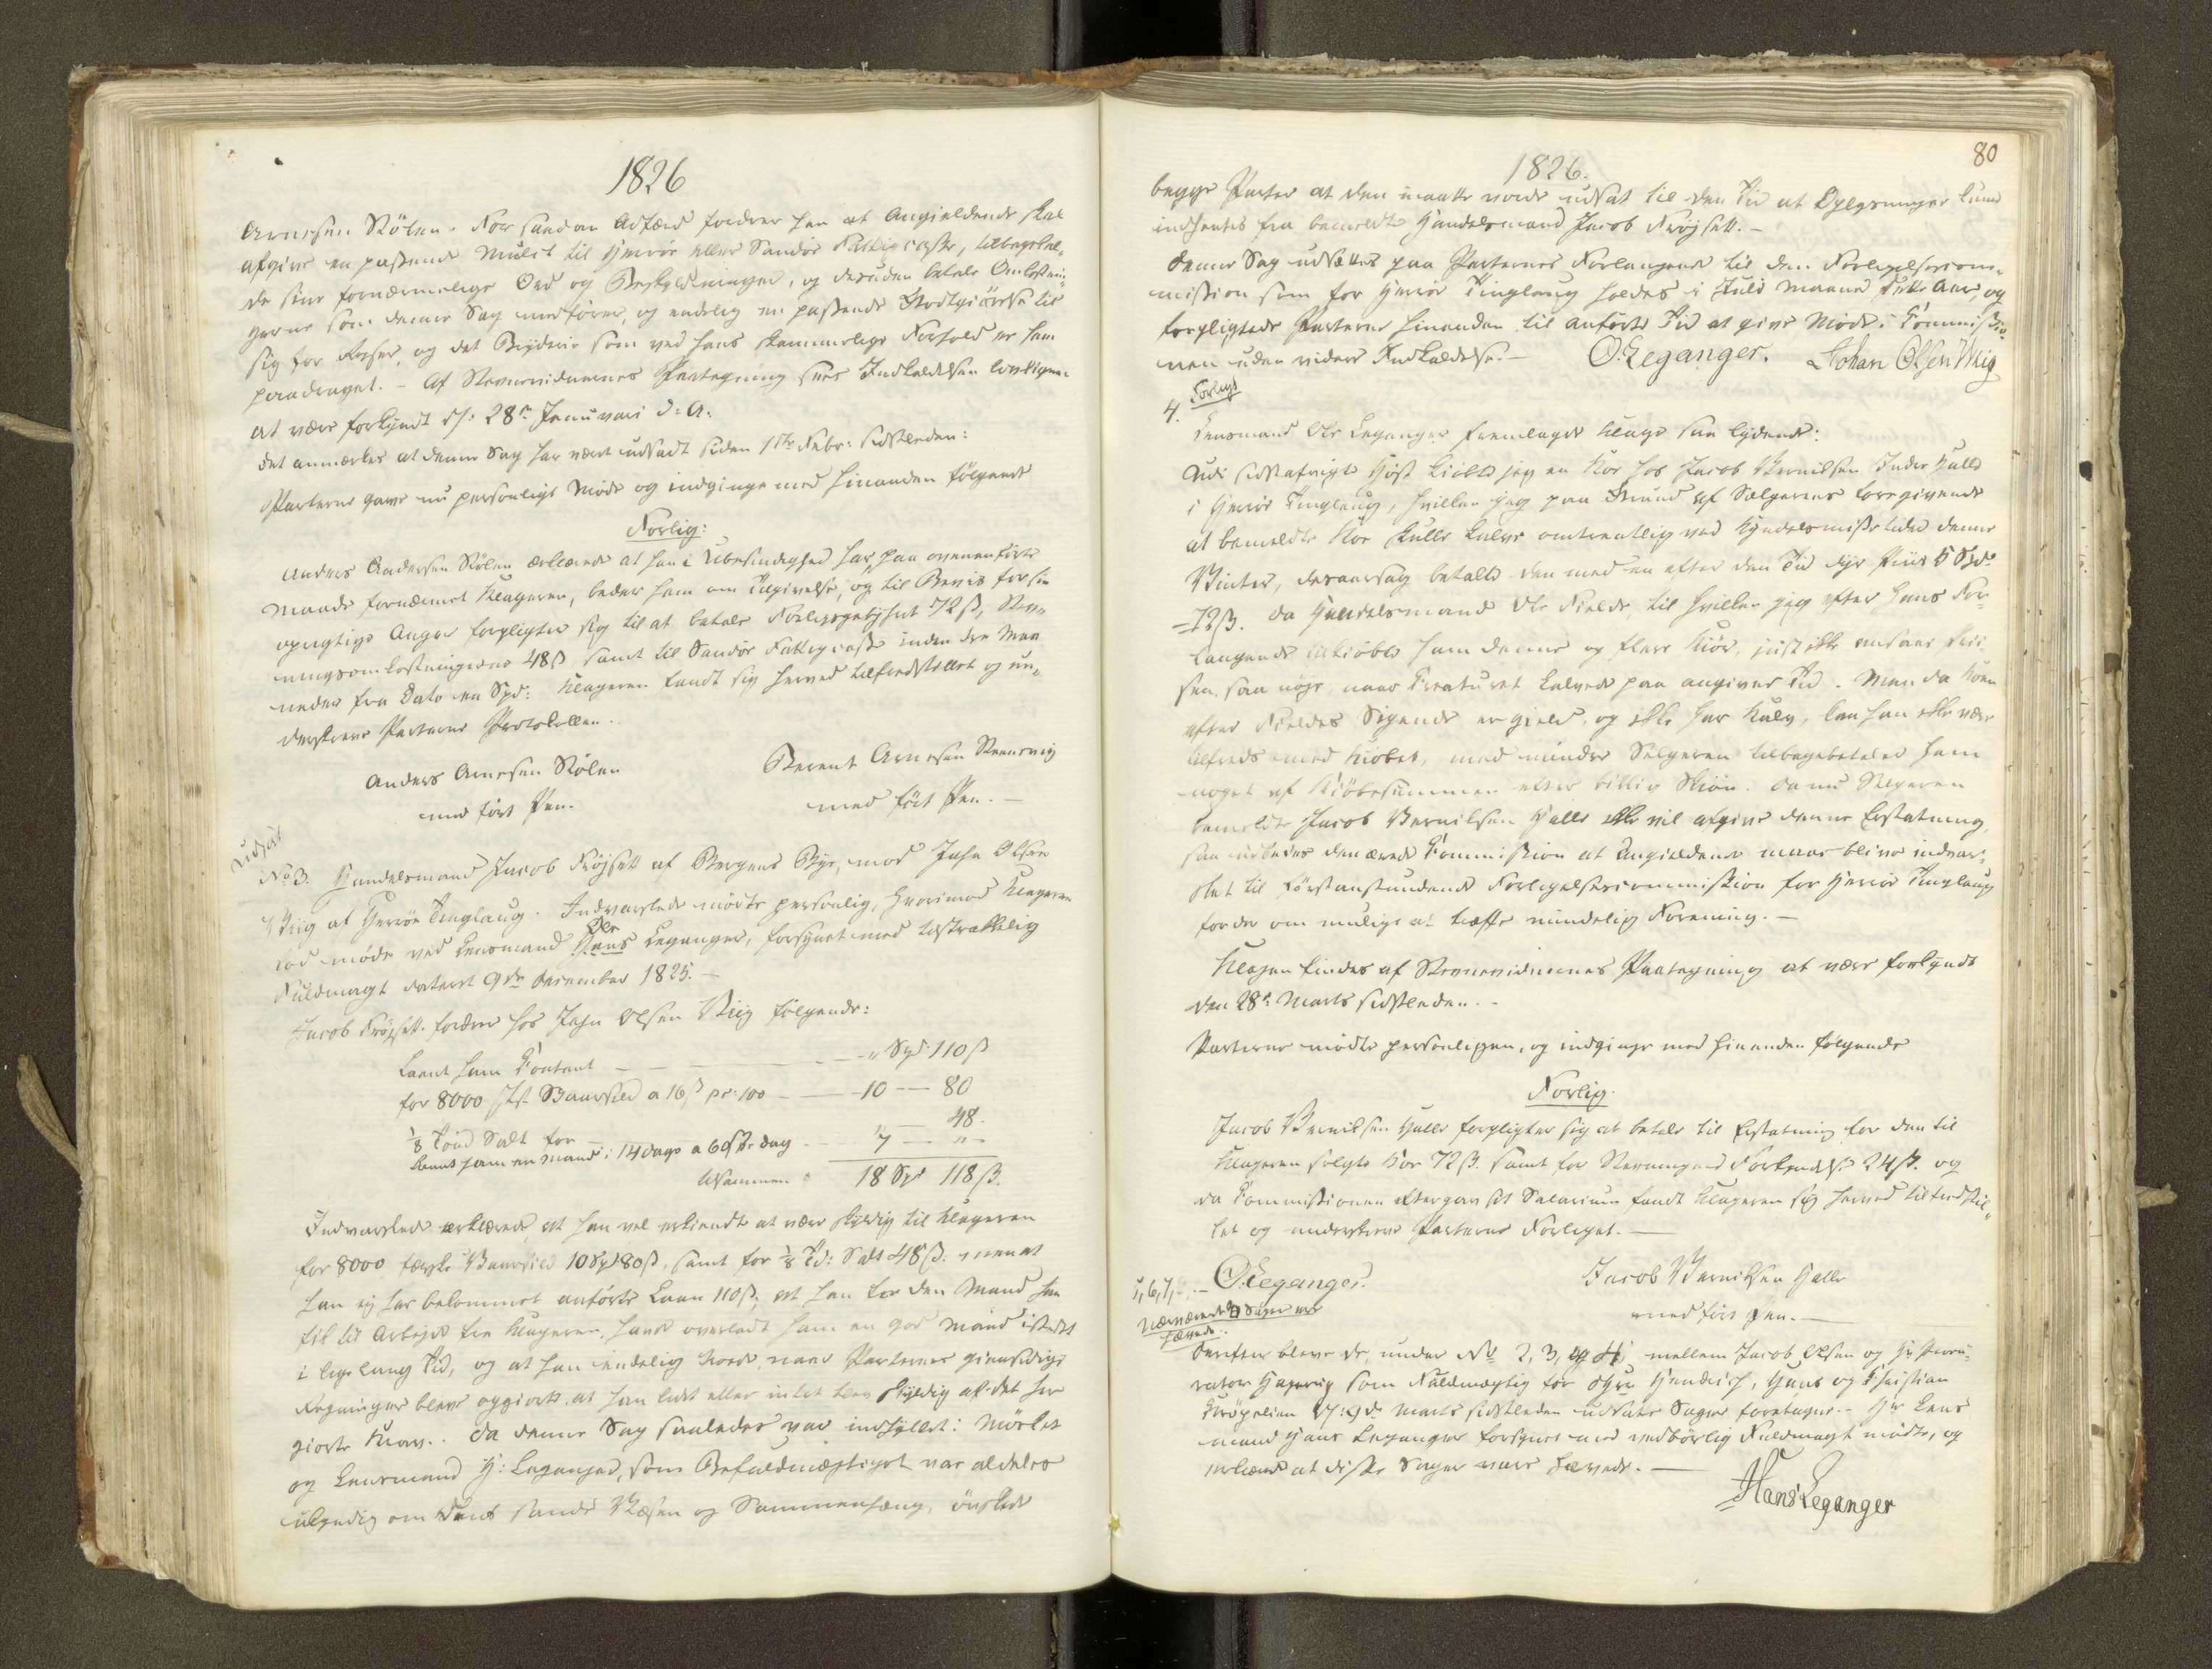 1826
Arnesen Rölen. For saadan Adfærd fordrer han at Angieldende skal
afgive en passende Mulct til Herröe eller Sandöe Fattigcasse, tilbagekal-
de sine fornærmelige Ord og Beskyldninger, og desuden betale Omkostnin-
gerne som denne Sag medförer, og endelig en passende Godtgiörelse til
sig for Reiser, og det Bryderie som ved hans skammelige Forhold er ham
paadraget. - Af Stevnevidnernes Paategning sees Indkaldelsen lovligen
at være forkyndt d: 28de Januari d: A:
Det anmærkes at denne Sag har været udsadt siden 1ste Febr: sidstleden:
Parterne gave nu personligt Møde og indginge med hinanden følgende
Forlig:
Anders Andersen Rölen erklærede at han i Ubesindighed har paa ovenanførte
Maade fornærmet Klageren, beder ham om Tilgivelse, og til Beviis for sin
oprigtige Anger forpligter sig til at betale Forligsgebyhret 72 ß, Stev-
ningsomkostningerne 48 ß samt til Sandöe Fattigcasse inden tre Maa
neder fra Dato een Spd: Klageren fandt sig herved tilfredsstillet og un-
derskreve Parterne Protokollen.
Anders Arnesen Rölen
med ført Pen.
Berent Arnesen Steensvig
med ført Pen. -
Udsat
No 3. Handelsmand Jacob Fröjsett af Bergens Bye, mod John Olsen
Wiig af Herröe Tinglaug. Indvarslede mödte personlig, hvorimod Klageren
lod møde ved Lensmand Hans Leganger, forsynet med tilstrækkelig
Ole
Fuldmagt dateret 9de December 1825. -
Jacob Fröjsett fordrer hos John Olsen Wiig følgende:
Laant ham Contant - - - - " Spd 110 ß
for 8000 Stk. Vaarsild a 16 ß pr: 100 - - - 10 - 80
1/8 Tönd Salt for - " - 48.
Laant ham en Mand i 14 Dage a 60 ß pr. Dag - 7 - " -
tilsammen 18 Spd 118 ß.
Indvarslede erklærede, at han vel erkiendte at være skyldig til Klageren
for 8000 færske Vaarsild 10 Spd 80 ß, samt for 1/8 Td: Salt 48 ß. men at
han ej har bekommet anførte Laan 110 ß, at han for den Mand han
fik til Arbejde fra Klageren, havde overladt ham en god Mand istedet
i lige lang Tid, og at han endelig troede, naar Parternes giensidige
Regninger bleve opgiort, at han lidt eller intet blev skyldig af det her
giorte Krav. Da denne Sag saaledes var indhyllet i Mörket
og Lensmand H: Leganger, som Befuldmægtiget var aldeles
ukyndig om dens sande Væsen og Sammenhæng, ønskede
80
1826.
begge Parter at den maatte vorde udsat til den Tid at Oplysninger kund
indhentes fra bemeldte Handelsmand Jacob Fröjsett. -
Denne Sag udsættes paa Parternes Forlangende til den Forligelsescom-
mission som for Herröe Tinglaug holdes i Juli Maaned dette Aar, og
forpligtede Parterne hinanden til anførte Tid at give Møde i Commissio-
nen uden videre Indkaldelse. -
O. Leganger. Johan Olsen Wiig
Forligt
4.
Lensmand Ole Leganger fremlagde Klage saa lydende:
Udi sidstafvigte Høst kiøbte jeg en Koe hos Jacob Berntsen Indre Halle
i Herröe Tinglaug, hvilken jeg paa Grund af Sælgerens foregivende
at bemeldte Koe skulle kalve omtrentlig ved Kyndelsmisse tider denne
Vinter, desaarsag betalte den med en efter den Tid dyr Priis 5 Spd.
72 ß. Da Handelsmand Ole Fielde, til hvilken jeg efter hans For-
langende tilkiøbte ham denne og flere Kiør, just ikke ansaae Pri
sen saa nøye, naar Creaturet kalvede paa angiven Tid. Men da Koen
efter Fieldes Sigende er gield, og ikke har Kalv, kan han ikke være
tilfreds med Kiøbet, med mindre Sælgeren tilbagebetaler ham
noget af Kiøbesummen efter billig Skiøn. Da nu Sælgeren
bemeldte Jacob Berntsen Halle ikke vil afgive denne Erstatning
saa udbedes den ærede Commission at Angieldende maae blive indvar-
slet til førstanstundende Forligelsescommission for Herröe Tinglaug
for der om muligt at træffe mindelig Forening. -
Klagen findes af Stevnevidnernes Paategning at være forkyndt
den 28de Marts sidstleden. -
Parterne mødte personligen, og indginge med hinanden følgende
Forlig.
Jacob Berntsen Halle forpligter sig at betale til Erstatning for den til
Klageren solgte Koe 72 ß. samt for Stevningens Forkyndelse 24 ß. og
da Commissionen eftergav sit Salarium fandt Klageren sig herved tilfredsstil-
let og underskreve Parterne Forliget. -
O. Leganger.
Jacob Berntsen Halle
med ført Pen. -
5, 6, 7, -
Nærværende 3 Sager ere
hævede.
Derefter bleve de, under No 2, 3, og 4 mellem Jacob Olsen og Hr Procu-
rator Hagerup som Fuldmægtig for Hendrich, Hans og Christian
Krøpelien d: 9de Marts sidstleden udsatte Sager foretagne. - Hr Lens
mand Hans Leganger forsynet med vedbørlig Fuldmagt mødte, og
erklærede at disse Sager vare hævede. -
Hans Leganger